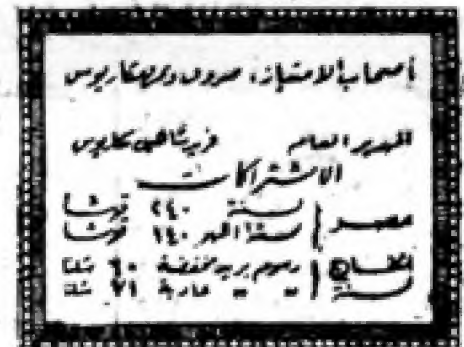 أصحاب الامتياز، صروف ومكاريوس
المدير العام فريد شاهين مكاريوس
الاشتراكات
مصر
سنة ٢٤٠ قرشا
ستة اشهر ١٤٠ قرشا
الخارج سنة
رسوم بريد مخفضة ٦٠ شلنا
" " عادية ٧١ شلنا